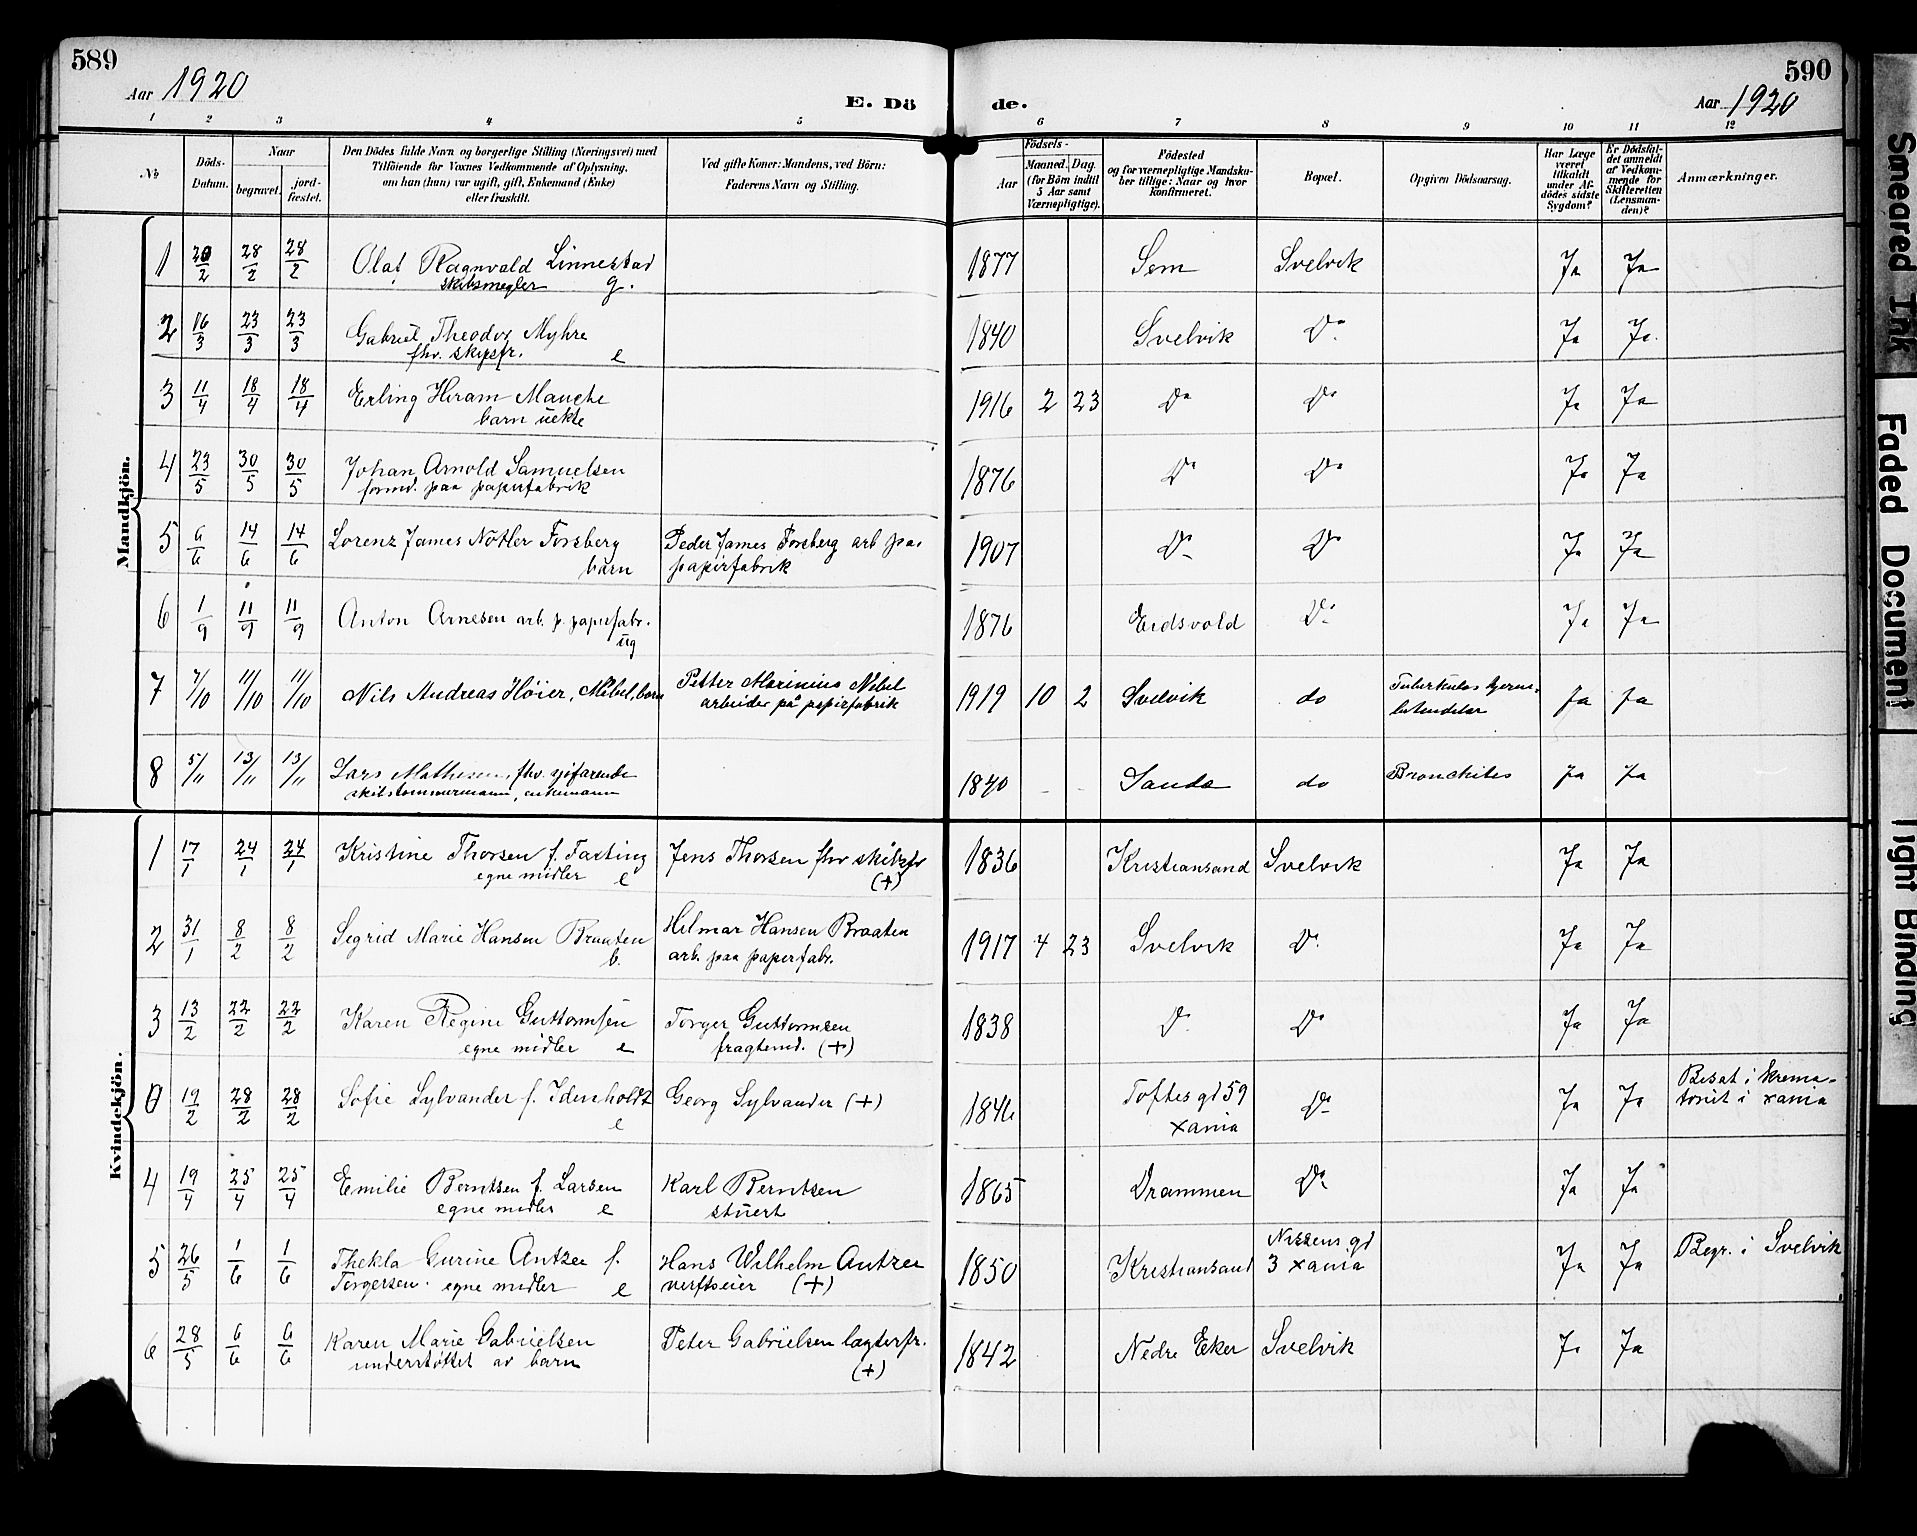 589
Aar 1920
E. Dö
de.
590
Aar 1920
1 2 3 4 5 6 7 8 9 10 11 12
No
Döds-
Datum.
Naar
begravet.
jord-
fæstet.
Den Dödes fulde Navn og borgerlige Stilling (Næringsvei) med
Tilföiende for Voxnes Vedkommende af Oplysning,
om han (hun) var ugift, gift, Enkemand (Enke)
eller fraskilt.
Ved gifte Koner: Mandens, ved Börn:
Faderens Navn og Stilling.
Födsels-
Aar
Maaned.
Dag.
(for Börn indtil
3 Aar samt
Værnepligtige).
Födested
og for værnepligtige Mandsku-
ber tillige: Naar og hvor
konfirmeret.
Bopæl.
Opgiven Dödsaarsag.
Har Læge
været
tilkaldt
under Af-
dödes sidste
Sygdom?
Er Dödsfal-
det anmeldt
af Vedkom-
mende for
Skifteretten
(Lensman-
den)?
Anmærkninger.
Mandkjön.
1 20/2 28/2 28/2 Olaf Ragnvald Linnestad 1877 Sem Svelvik Ja Ja
skibsmegler g.
2 16/3 23/3 23/3 Gabriel Theodor Myhre 1840 Svelvik Do Ja Ja.
fhv. skipsfr. e
3 11/4 18/4 18/4 Erling Hiram Manche 1916 2 23 Do Do Ja Ja
barn uekte
4 23/5 30/5 30/5 Johan Arnold Samuelsen 1876 Do Do Ja Ja
formd. paa papirfabrik
5 6/6 14/6 14/6 Lorenz James Notler Forsberg Peder James Forsberg arb pa. 1907 Do Do Ja Ja
barn papirfabrik
6 1/9 11/9 11/9 Anton Arnesen arb. p. papirfabr. 1876 Eidsvold Do Ja Ja
ug
7 7/10 11/10 11/10 Nils Andreas Høier, Nibel, barn Petter Marinius Nibel 1919 10 2 Svelvik do Tuberkuløs hjerne- Ja Ja
arbeider på papirfabrik betendelse
8 5/11 13/11 13/11 Lars Mathisen, fhv. sjøfarende 1840 - - Sande do Bronchites Ja Ja
skibstømmermann, enkemann
Kvindekjön.
1 17/1 24/1 24/1 Kristine Thorsen f. Fasting Jens Thorsen fhv skibsfr 1836 Kristiansand Svelvik Ja Ja
egne midler e (+)
2 31/1 8/2 8/2 Sigrid Marie Hansen Braaten Hilmar Hansen Braaten 1917 4 23 Svelvik Do Ja Ja
b. arb. paa papirfabr.
3 13/2 22/2 22/2 Karen Regine Guttormsen Torger Guttormsen 1838 Do Do Ja Ja
egne midler e fragtemd. (+)
0 19/2 28/2 28/2 Sofie Sylvander f. Idenholdt Georg Sylvander (+) 1846 Toftes gd 59 Do Ja Ja Bisat i krema-
e xania toriet i xania
4 19/4 25/4 25/4 Emilie Berntsen f. Larsen Karl Berntsen 1865 Drammen Do Ja Ja
egne midler e stuert
5 26/5 1/6 1/6 Thekla Gurine Antzee f. Hans Wilhelm Antzee 1850 Kristiansand Nissens gd Ja Ja Begr. i Svelvik
Torgersen. egne midler e verftseier (+) 3 xania
6 28/5 6/6 6/6 Karen Marie Gabrielsen Peter Gabrielsen lagterfr. 1842 Nedre Eker Svelvik Ja Ja
understøttet av barn (+)
Smeared Ink
Faded Document
Tight Binding